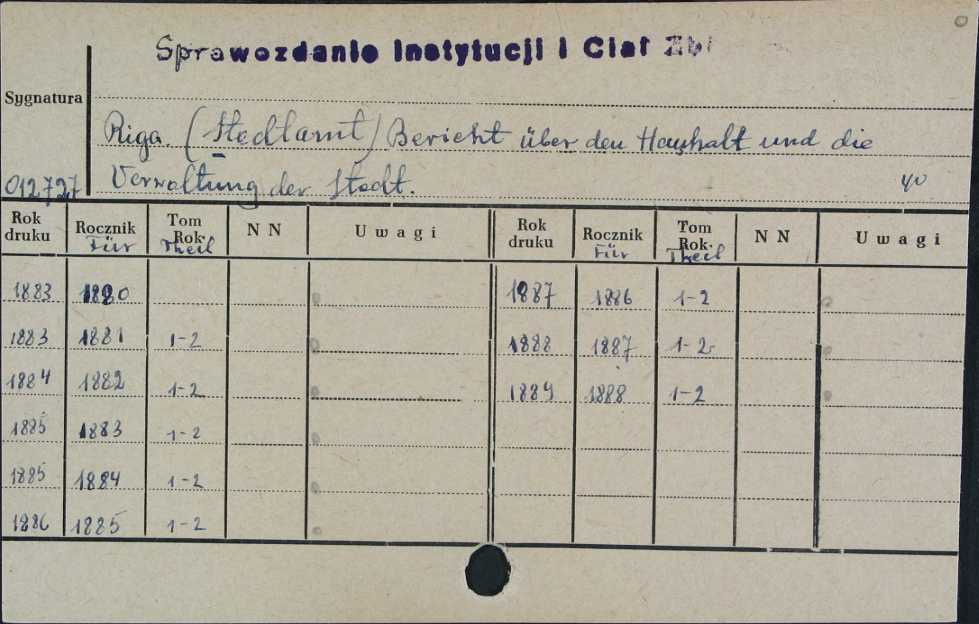 Sprawozdanie Instytucji i Ciał Zbi
Sygnatura
Riga. (Stadtamt) Bericht über den Haushalt und die
012727 Verwaltung der Stadt. 40
Rok druku Rocznik Für Tom Rok. Theil N N Uwagi Rok druku Rocznik Für Tom Rok. Theil N N Uwagi
1883 1880 1887 1886 1-2
1883 1881 1-2 1888 1887 1-2
1884 1882 1-2 1889 1888 1-2
1885 1883 1-2
1885 1884 1-2
1886 1885 1-2